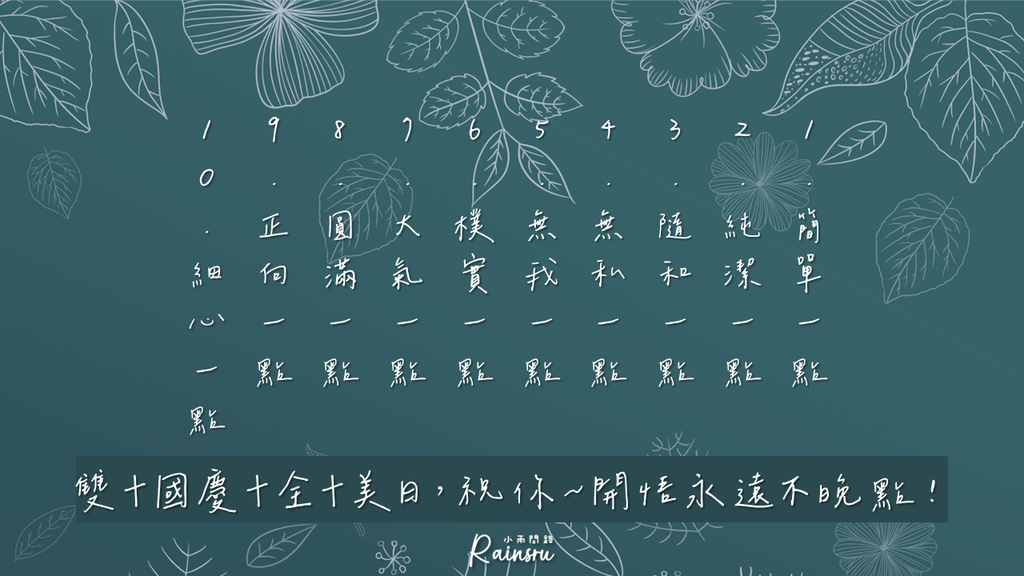 1.簡單一點
2.純潔一點
3.隨和一點
4.無私一點
5.無我一點
6.樸實一點
7.大氣一點
8.圓滿一點
9.正向一點
10.細心一點
雙十國慶十全十美日，祝你~開悟永遠不晚點！
小雨問路
Rainsru